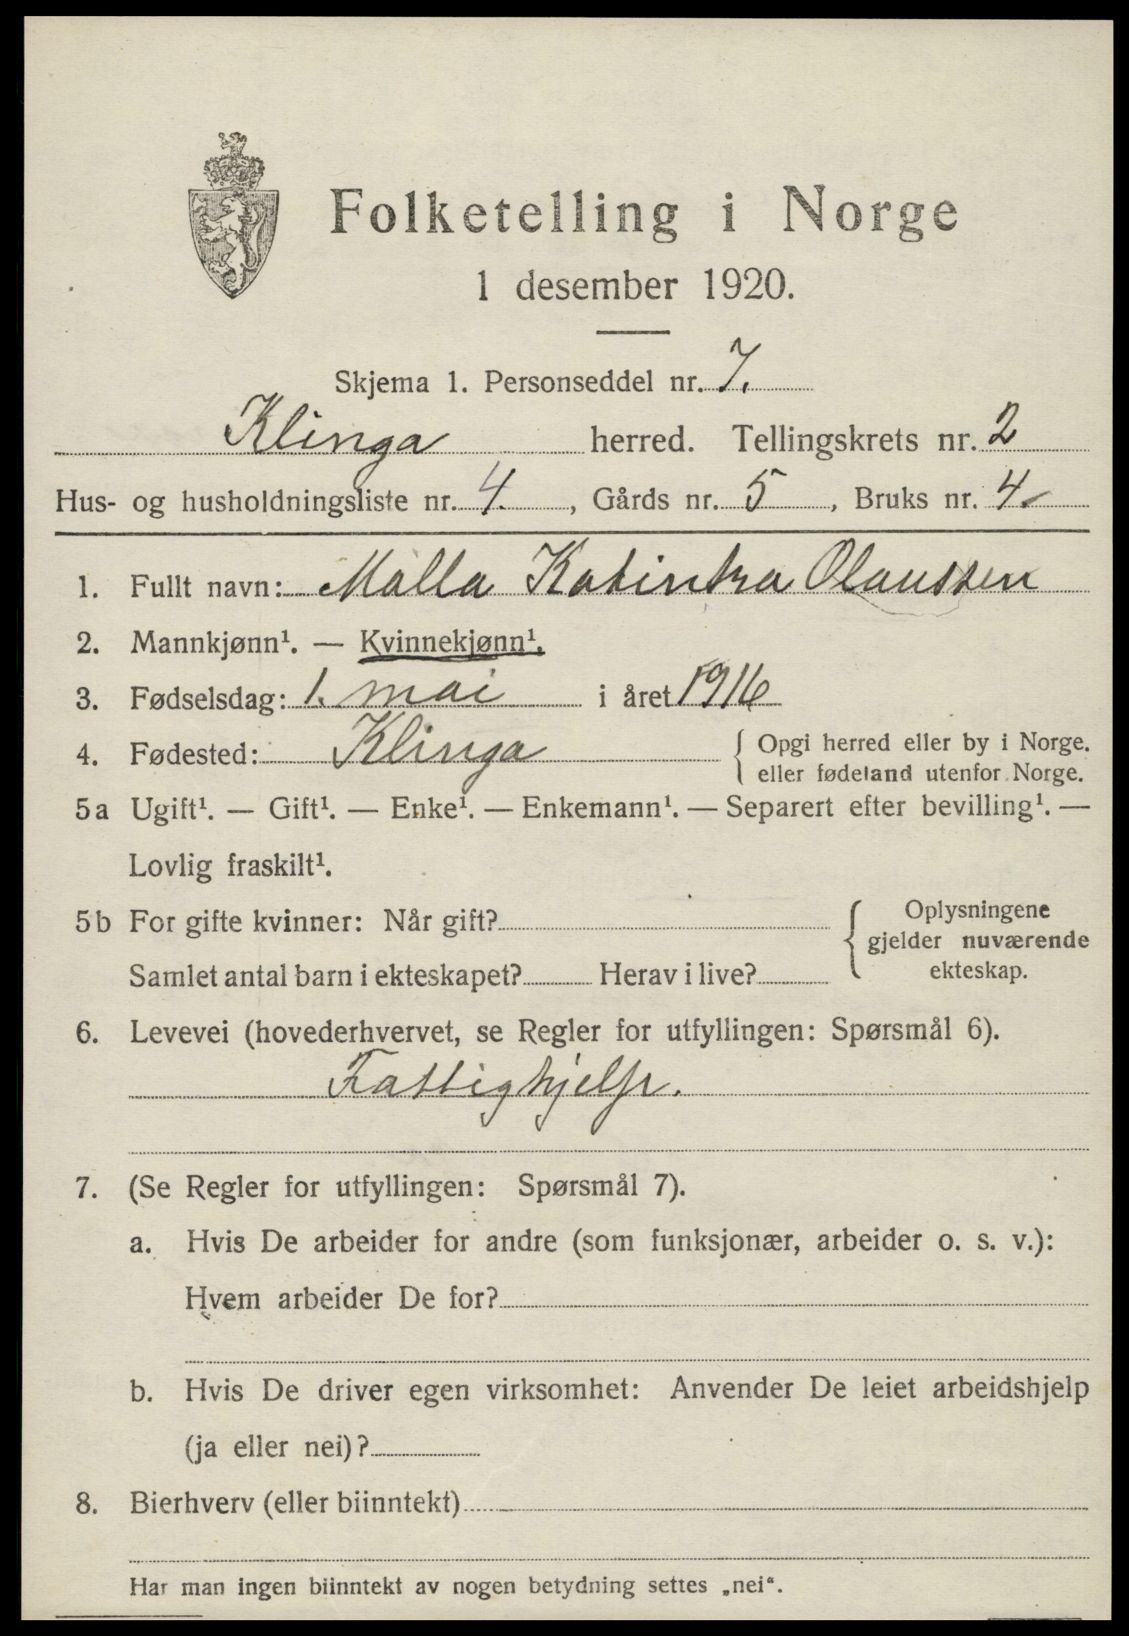 Folketelling i Norge
1 desember 1920.
Skjema 1. Personseddel nr. 7.
Klinga herred. Tellingskrets nr. 2
Hus- og husholdningsliste nr. 4., Gårds nr. 5, Bruks nr. 4
1. Fullt navn: Malla Katinka Olaussen
2. Mannkjønn¹. — Kvinnekjønn¹.
3. Fødselsdag: 1. mai i året 1916
4. Fødested: Klinga { Opgi herred eller by i Norge.
eller fødeland utenfor Norge.
5a Ugift¹. — Gift¹. — Enke¹. — Enkemann¹. — Separert efter bevilling¹. —
Lovlig fraskilt¹.
5b For gifte kvinner: Når gift?
Samlet antal barn i ekteskapet? Herav i live?
{ Oplysningene
gjelder nuværende
ekteskap.
6. Levevei (hovederhvervet, se Regler for utfyllingen: Spørsmål 6).
Fattighjelp.
7. (Se Regler for utfyllingen: Spørsmål 7).
a. Hvis De arbeider for andre (som funksjonær, arbeider o. s. v.):
Hvem arbeider De for?
b. Hvis De driver egen virksomhet: Anvender De leiet arbeidshjelp
(ja eller nei)?
8. Bierhverv (eller biinntekt)
Har man ingen biinntekt av nogen betydning settes „nei“.